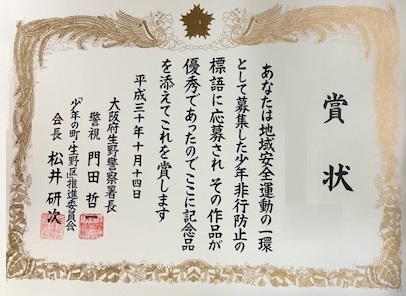 賞状
あなたは地域安全運動の一環
として募集した少年非行防止の
標語に応募され その作品が
優秀であったのでここに記念品
を添えてこれを賞します
平成三十年十月十四日
大阪府生野警察署長
警視 門田 哲一
“少年の町・生野区”推進委員会
会長 松井 研次